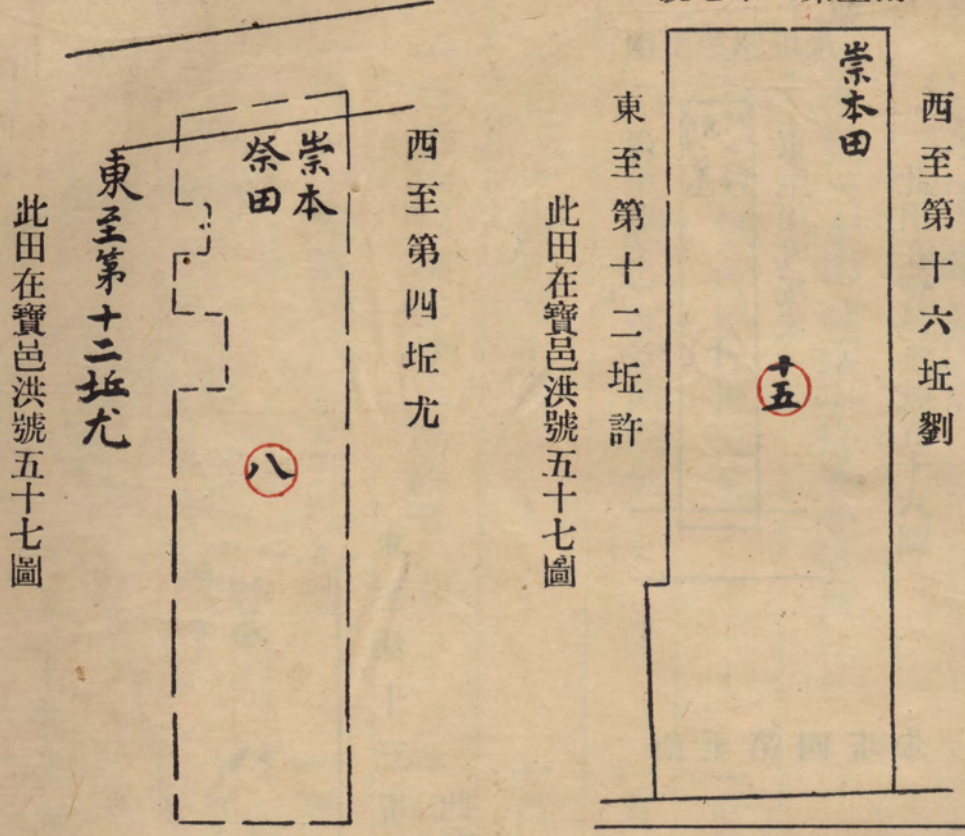 西至第十六坵劉
崇本田
十五
東至第十二坵許
此田在寶邑洪號五十七圖
西至第四坵尤
崇本
祭田
八
東至第十二坵尤
此田在寶邑洪號五十七圖